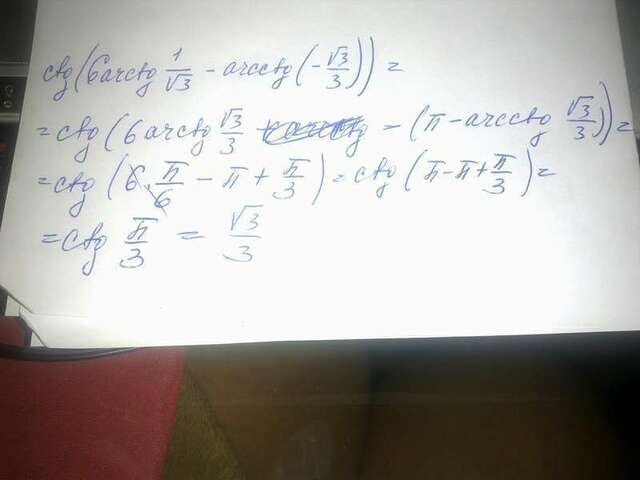 ctg(6arctg 1/√3 - arcctg(-√3/3)) =
= ctg(6arctg √3/3 - (π - arcctg √3/3)) =
= ctg(6·π/6 - π + π/3) = ctg(π - π + π/3) =
= ctg π/3 = √3/3